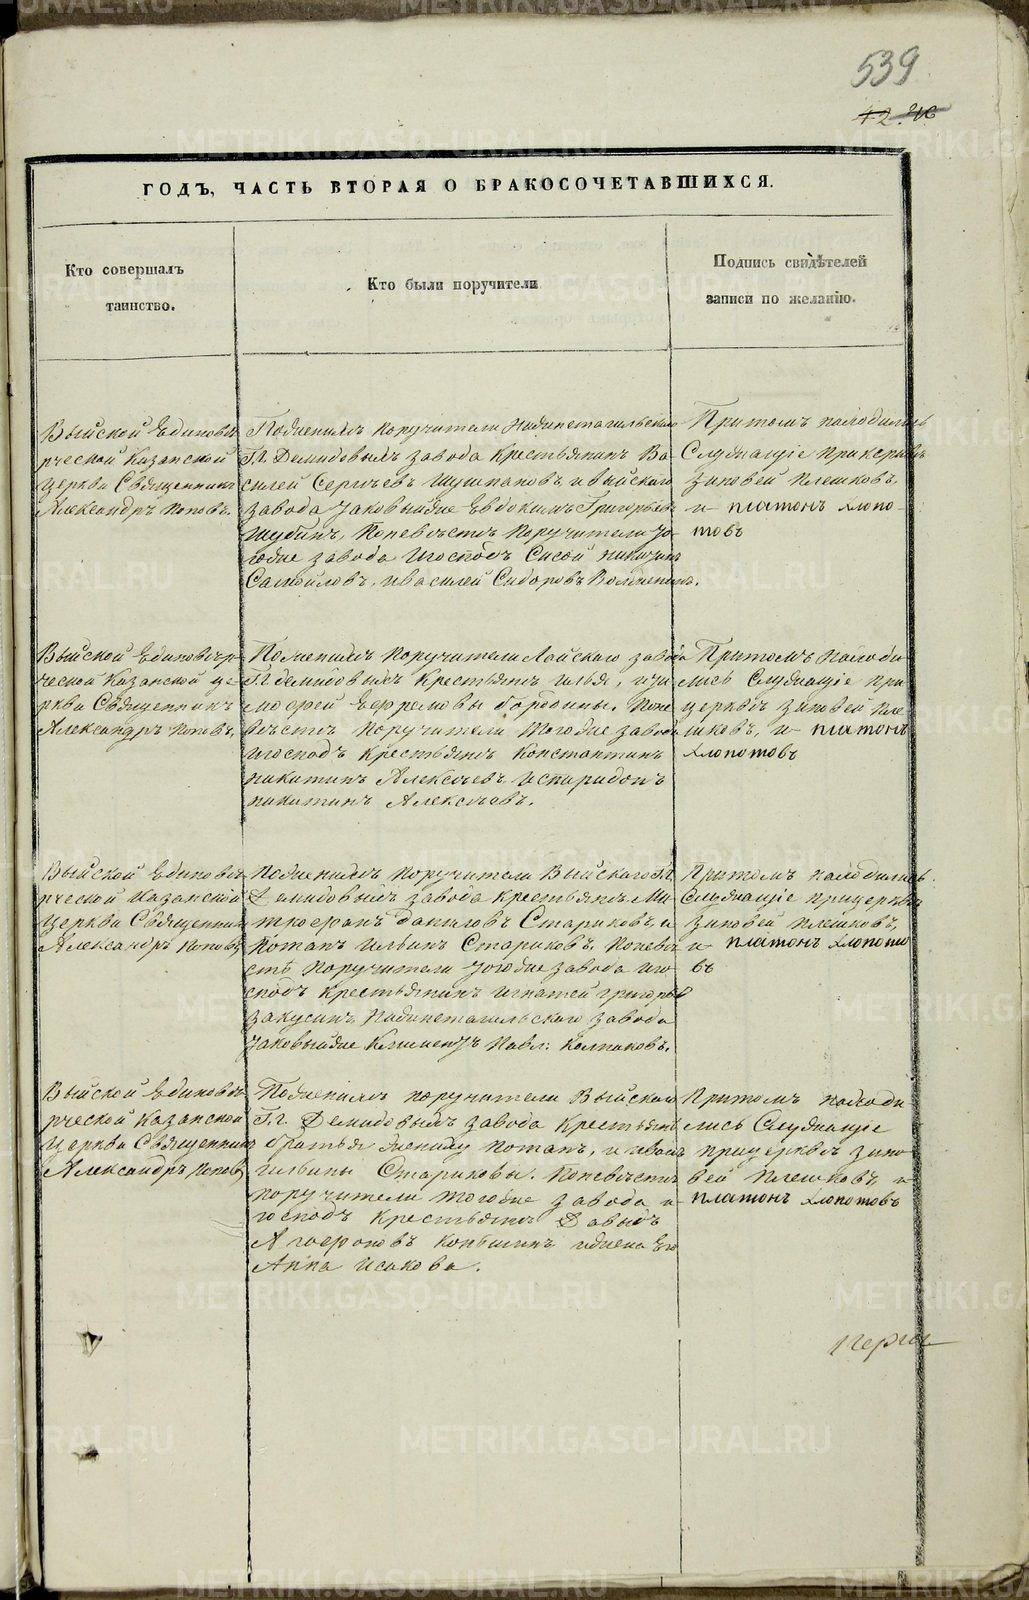 539
42.
ГОДЪ, ЧАСТЬ ВТОРАЯ О БРАКОСОЧЕТАВШИХСЯ.
Кто совершалъ
таинство.
Кто были поручители
Подпись свидѣтелей
записи по желанію.
Выйской Единовѣ-
рческой Казанской
церкви Священникъ
Александръ Поповъ.
Поженихѣ поручители Нижнетагильскаго
Г.г. Демидовыхъ завода Крестьянинъ Ва-
силей Сергѣевъ ивыйскаго
завода Евдокимъ Григорьевъ
Шубинъ, Поневѣстѣ поручители
завода Игосподъ Сисой никитинъ
Самойловъ, ивасилей Сидоровъ
Притомъ находились
Служащіе прицеркви
зиновей Плешковъ,
и платонъ хлопо-
товъ
Выйской Единовѣр-
ческой Казанской це-
ркви Священникъ
Александръ Поповъ.
Поженихѣ Поручители Лайскаго завода
Г.г. демидовыхъ крестьяне илья, и ти-
мофей Ефремовы бородины. Поне-
вѣстѣ Поручители Тогоже завода
игосподъ крестьяне Константинъ
никитинъ Алексѣевъ испиридонъ
никитинъ Алексѣевъ.
Притомъ Находи
лись Служащіе при
церквѣ зиновей Пле
шковъ, и платонъ
хлопотовъ
Выйской Единовѣ
рческой Казанской
церкви Священникъ
Александръ Поповъ
Поженихѣ поручители Выйскаго Г.г.
Демидовыхъ завода крестьяне Ми-
трофанъ даниловъ Стариковъ, и
Потапъ ильинъ Стариковъ, Поневѣ
стѣ Поручители тогоже завода иго-
сподъ крестьянинъ игнатей григорьевъ
закусинъ Нижнетагильскаго завода
Павл: Колпаковъ.
Притомъ находились
Служащіе прицерквѣ
зиновей Плешковъ,
и платонъ хлопото
въ
Выйской Единовѣ
рческой Казанской
Церкви Священникъ
Александръ Поповъ
Поженихѣ поручители Выйскаго
Г.г. Демидовыхъ завода крестьяне
братья жениху Потапъ, и иванъ
ильины Стариковы. Поневѣстѣ
поручители тогоже завода и
господъ крестьяне Давыдъ
Агафоновъ Копысинъ ижена его
Анна исакова.
Притомъ находи
лись Служащіе
прицерквѣ зино-
вей Плешковъ, и
платонъ хлопотовъ